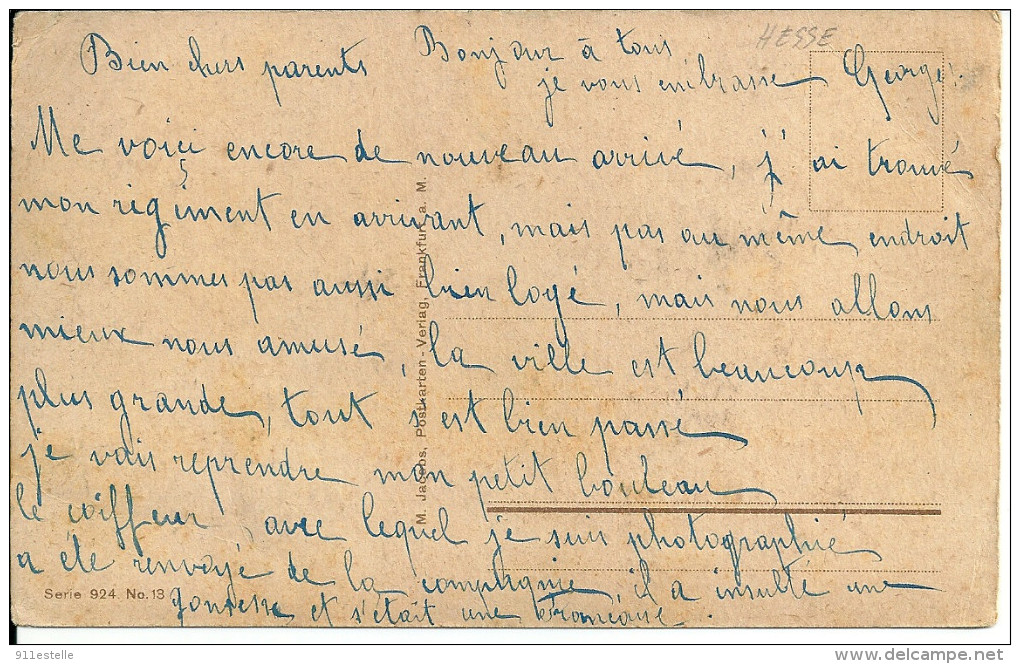 HESSE
Bonjour à tous
je vous embrasse Georges.
Bien chers parents
Me voiçi encore de nouveau arrivé, j'ai trouvé
mon régiment en arrivant, mais pas au même endroit
nous sommes pas aussi bien logé, mais nous allons
mieux nous amusé, la ville est beaucoup
plus grande, tout est bien passé
je vais reprendre mon petit bouleau
le coiffeur, avec lequel je suis photographié
a été renvoyé de la compagnie, il a insulté une
et s'était une Francaise.
M. Jacobs, Postkarten-Verlag, Frankfurt a. M.
Serie 924. No. 13
911estelle
delcampe.net